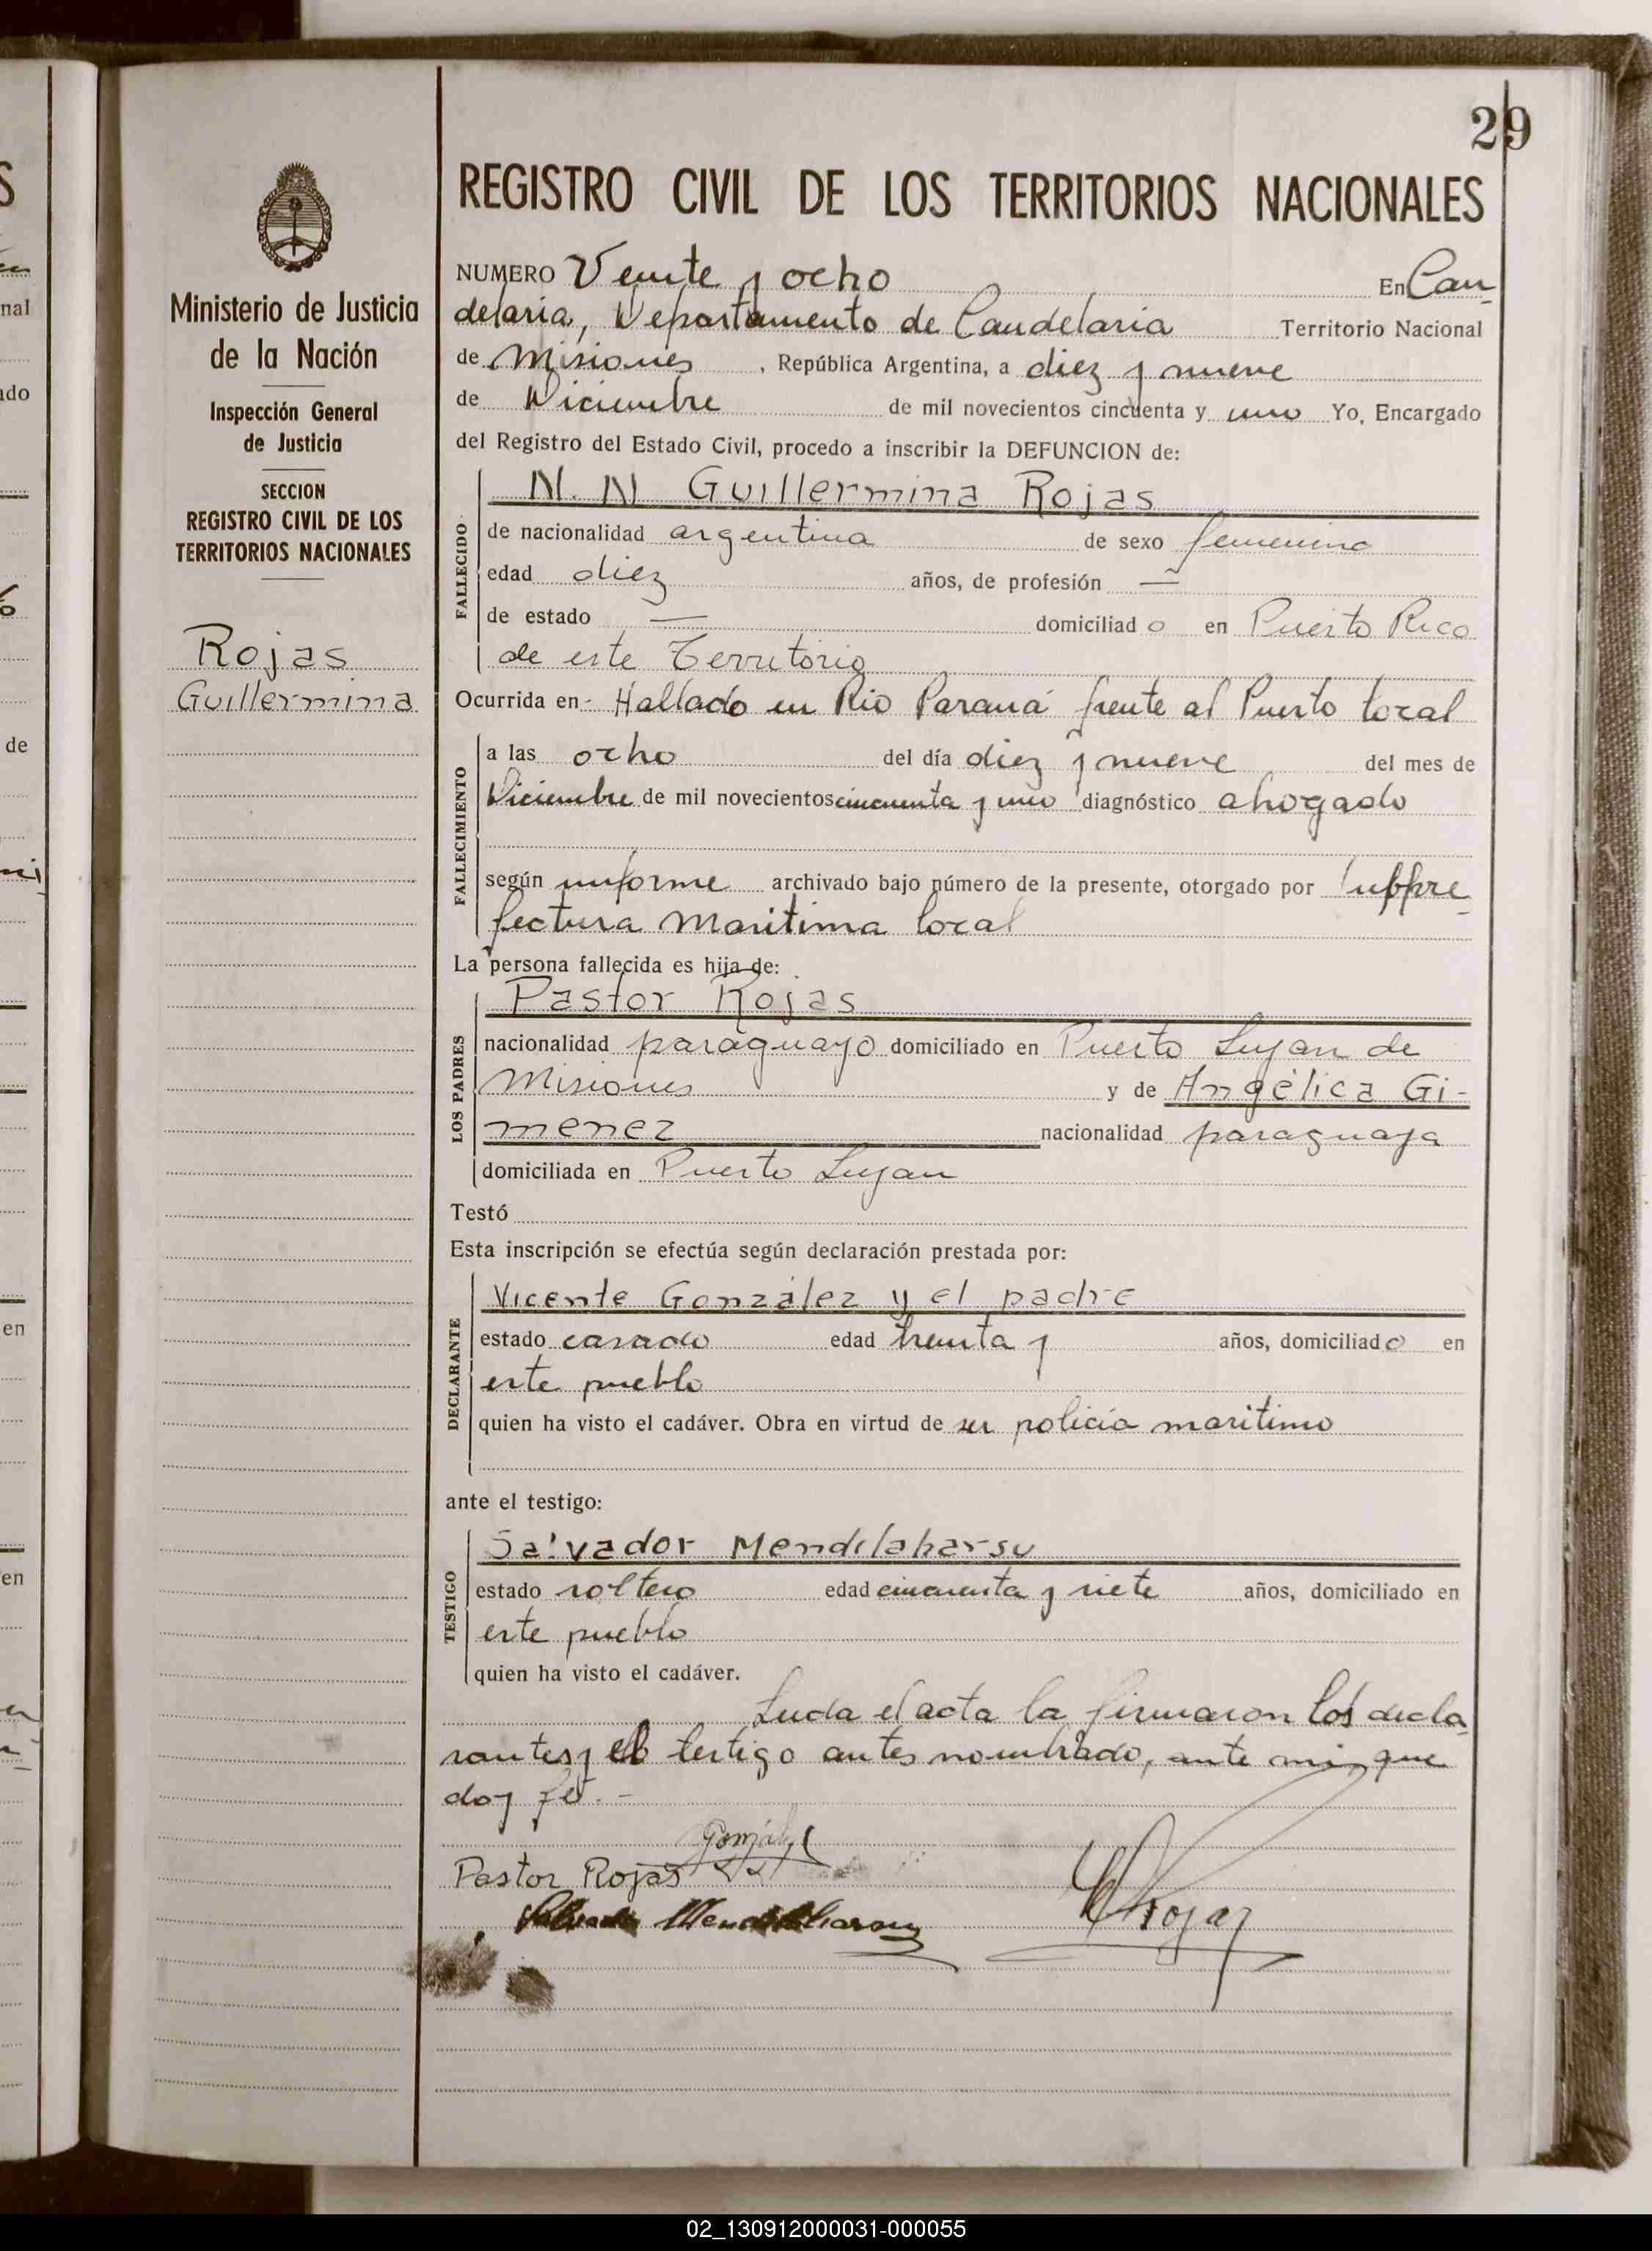 29
REGISTRO CIVIL DE LOS TERRITORIOS NACIONALES
Ministerio de Justicia
de la Nación
Inspección General
de Justicia
SECCION
REGISTRO CIVIL DE LOS
TERRITORIOS NACIONALES
Rojas
Guillermina
NUMERO Veinte y ocho En Can-
delaria, Departamento de Candelaria Territorio Nacional
de Misiones, República Argentina, a diez y nueve
de Diciembre de mil novecientos cincuenta y uno Yo, Encargado
del Registro del Estado Civil, procedo a inscribir la DEFUNCION de:
FALLECIDO
N. N Guillermina Rojas
de nacionalidad argentina de sexo femenino
edad diez años, de profesión —
de estado — domiciliado en Puerto Rico
de este Territorio
Ocurrida en- Hallado en Rio Paraná frente al Puerto local
FALLECIMIENTO
a las ocho del día diez y nueve del mes de
Diciembre de mil novecientos cincuenta y uno diagnóstico ahogado
según informe archivado bajo número de la presente, otorgado por Subpre-
fectura Maritima local
La persona fallecida es hija de:
LOS PADRES
Pastor Rojas
nacionalidad paraguayo domiciliado en Puerto Lujan de
Misiones y de Angélica Gi-
menez nacionalidad paraguaya
domiciliada en Puerto Lujan
Testó
Esta inscripción se efectúa según declaración prestada por:
DECLARANTE
Vicente González y el padre
estado casado edad treinta y años, domiciliado en
este pueblo
quien ha visto el cadáver. Obra en virtud de ser policia maritimo
ante el testigo:
TESTIGO
Salvador Mendilaharsu
estado soltero edad cincuenta y siete años, domiciliado en
este pueblo
quien ha visto el cadáver.
Leida el acta la firmaron los decla-
rantes y el testigo antes nombrado, ante mi, que
doy fé.-
González
Pastor Rojas
Salvador Mendilaharsu
Rojas
02_130912000031-000055